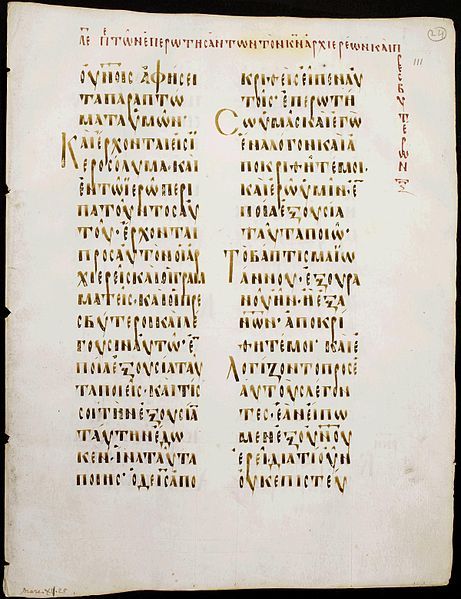 ΠΤΩΝΕΠΕΡΩΤΗΣΑΝΤΩΝΤΟΝΚΝΑΡΧΙΕΡΕΩΝΚΑΙΠ
ΡΕΣΒΥΤΕΡΩΝ
24
III
ΟΥΝΟΙΣ ΑΦΗΣΕΙ
ΤΑΠΑΡΑΠΤΩ
ΜΑΤΑΥΜΩΝ·
ΚΑΙΕΡΧΟΝΤΑΙΕΙΣΙ
ΕΡΟΣΟΛΥΜΑ·ΚΑΙ
ΕΝΤΩΙΕΡΩΠΕΡΙ
ΠΑΤΟΥΝΤΟΣΑΥ
ΤΟΥ·ΕΡΧΟΝΤΑΙ
ΠΡΟΣΑΥΤΟΝΟΙΑΡ
ΧΙΕΡΕΙΣΚΑΙΟΙΓΡΑΜ
ΜΑΤΕΙΣ·ΚΑΙΟΙΠΡΕ
ΣΒΥΤΕΡΟΙΚΑΙΛΕ
ΓΟΥΣΙΝΑΥΤΩ·ΕΝ
ΠΟΙΑΕΞΟΥΣΙΑΤΑΥ
ΤΑΠΟΙΕΙΣ·ΚΑΙΤΙΣ
ΣΟΙΤΗΝΕΞΟΥΣΙΑΝ
ΤΑΥΤΗΝΕΔΩ
ΚΕΝ·ΙΝΑΤΑΥΤΑ
ΠΟΙΗΣ·ΟΔΕΙΣΑΠΟ
ΚΡΙΘΕΙΣΕΙΠΕΝΑΥ
ΤΟΙΣ·ΕΠΕΡΩΤΗ
ΣΩΥΜΑΣΚΑΙΕΓΩ
ΕΝΑΛΟΓΟΝΚΑΙΑ
ΠΟΚΡΙΘΗΤΕΜΟΙ·
ΚΑΙΕΡΩΥΜΙΝ·ΕΝ
ΠΟΙΑΕΞΟΥΣΙΑ
ΤΑΥΤΑΠΟΙΩ·
ΤΟΒΑΠΤΙΣΜΑΙΩ
ΑΝΝΟΥ·ΕΞΟΥΡΑ
ΝΟΥΗΝ·ΗΕΞΑ
ΝΩΝ·ΑΠΟΚΡΙ
ΘΗΤΕΜΟΙ·ΚΑΙΕ
ΛΟΓΙΖΟΝΤΟΠΡΟΣΕ
ΑΥΤΟΥΣΛΕΓΟΝ
ΤΕΣ·ΕΑΝΕΙΠΩ
ΜΕΝΕΞΟΥΝΟΥ
ΕΡΕΙΔΙΑΤΙΟΥΝ
ΟΥΚΕΠΙΣΤΕΥ